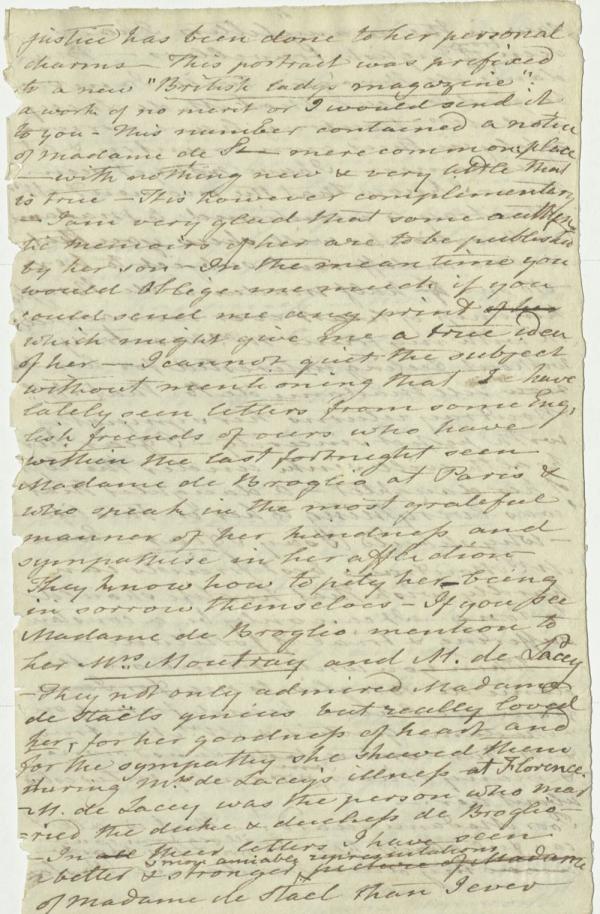 justice has been done to her personal
charms – This portrait was prefixed
to a new "British lady's magazine"
a work of no merit or I would send it
to you – This number contained a notice
of Madame de St— mere common place
– with nothing new & very little that
is true – This however complimentary
– I am very glad that some authen
tic memoirs of her are to be published
by her son – In the mean time you
would oblege me much if you
could send me any print of her
which might give me a true idea
of her — I cannot quit the subject
without mentioning that I have
lately seen letters from some Eng
lish friends of ours who have
within the last fortnight seen
Madame de Broglio at Paris &
who speak in the most grateful
manner of her kindness and
sympathise in her affliction
They know how to pity her – being
in sorrow themselves – If you see
Madame de Broglio mention to
her Mrs Moutray and M. de Lacey
– They not only admired Madame
de Staëls genius but really loved
her, for her goodness of heart and
for the sympathy she shewed them
during Mrs de Laceys illness at Florence.
M. de Lacey was the person who mar
ried the duke & duchess de Broglio
– In all their letters I have seen
& more amiable representations
a better & stronger picture of Madame
of Madame de Stael than I ever